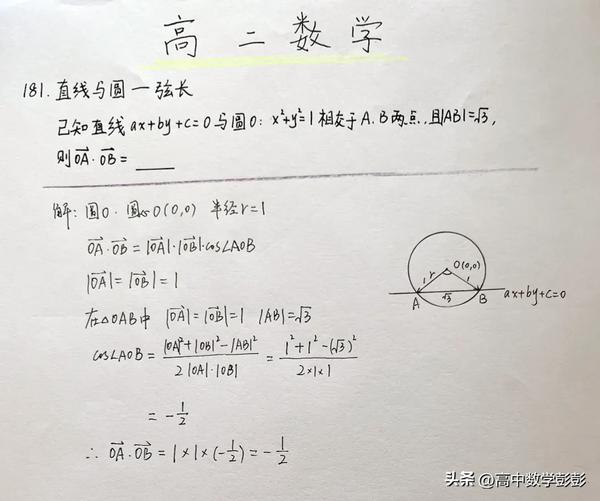 高二数学
181. 直线与圆—弦长
已知直线ax+by+c=0与圆O: x²+y²=1相交于A.B两点,且|AB|=√3,
则OA→·OB→= ____
解: 圆O. 圆心O(0,0) 半径r=1
OA→·OB→=|OA→|·|OB→|·cos∠AOB
|OA→|=|OB→|=1
在△OAB中 |OA→|=|OB→|=1 |AB|=√3
cos∠AOB = (|OA|²+|OB|²-|AB|²)/(2|OA|·|OB|) = (1²+1²-(√3)²)/(2×1×1)
= -1/2
∴ OA→·OB→=1×1×(-1/2)=-1/2
O(0,0)
r
1
1
√3
A
B
ax+by+c=0
头条 @高中数学彭彭